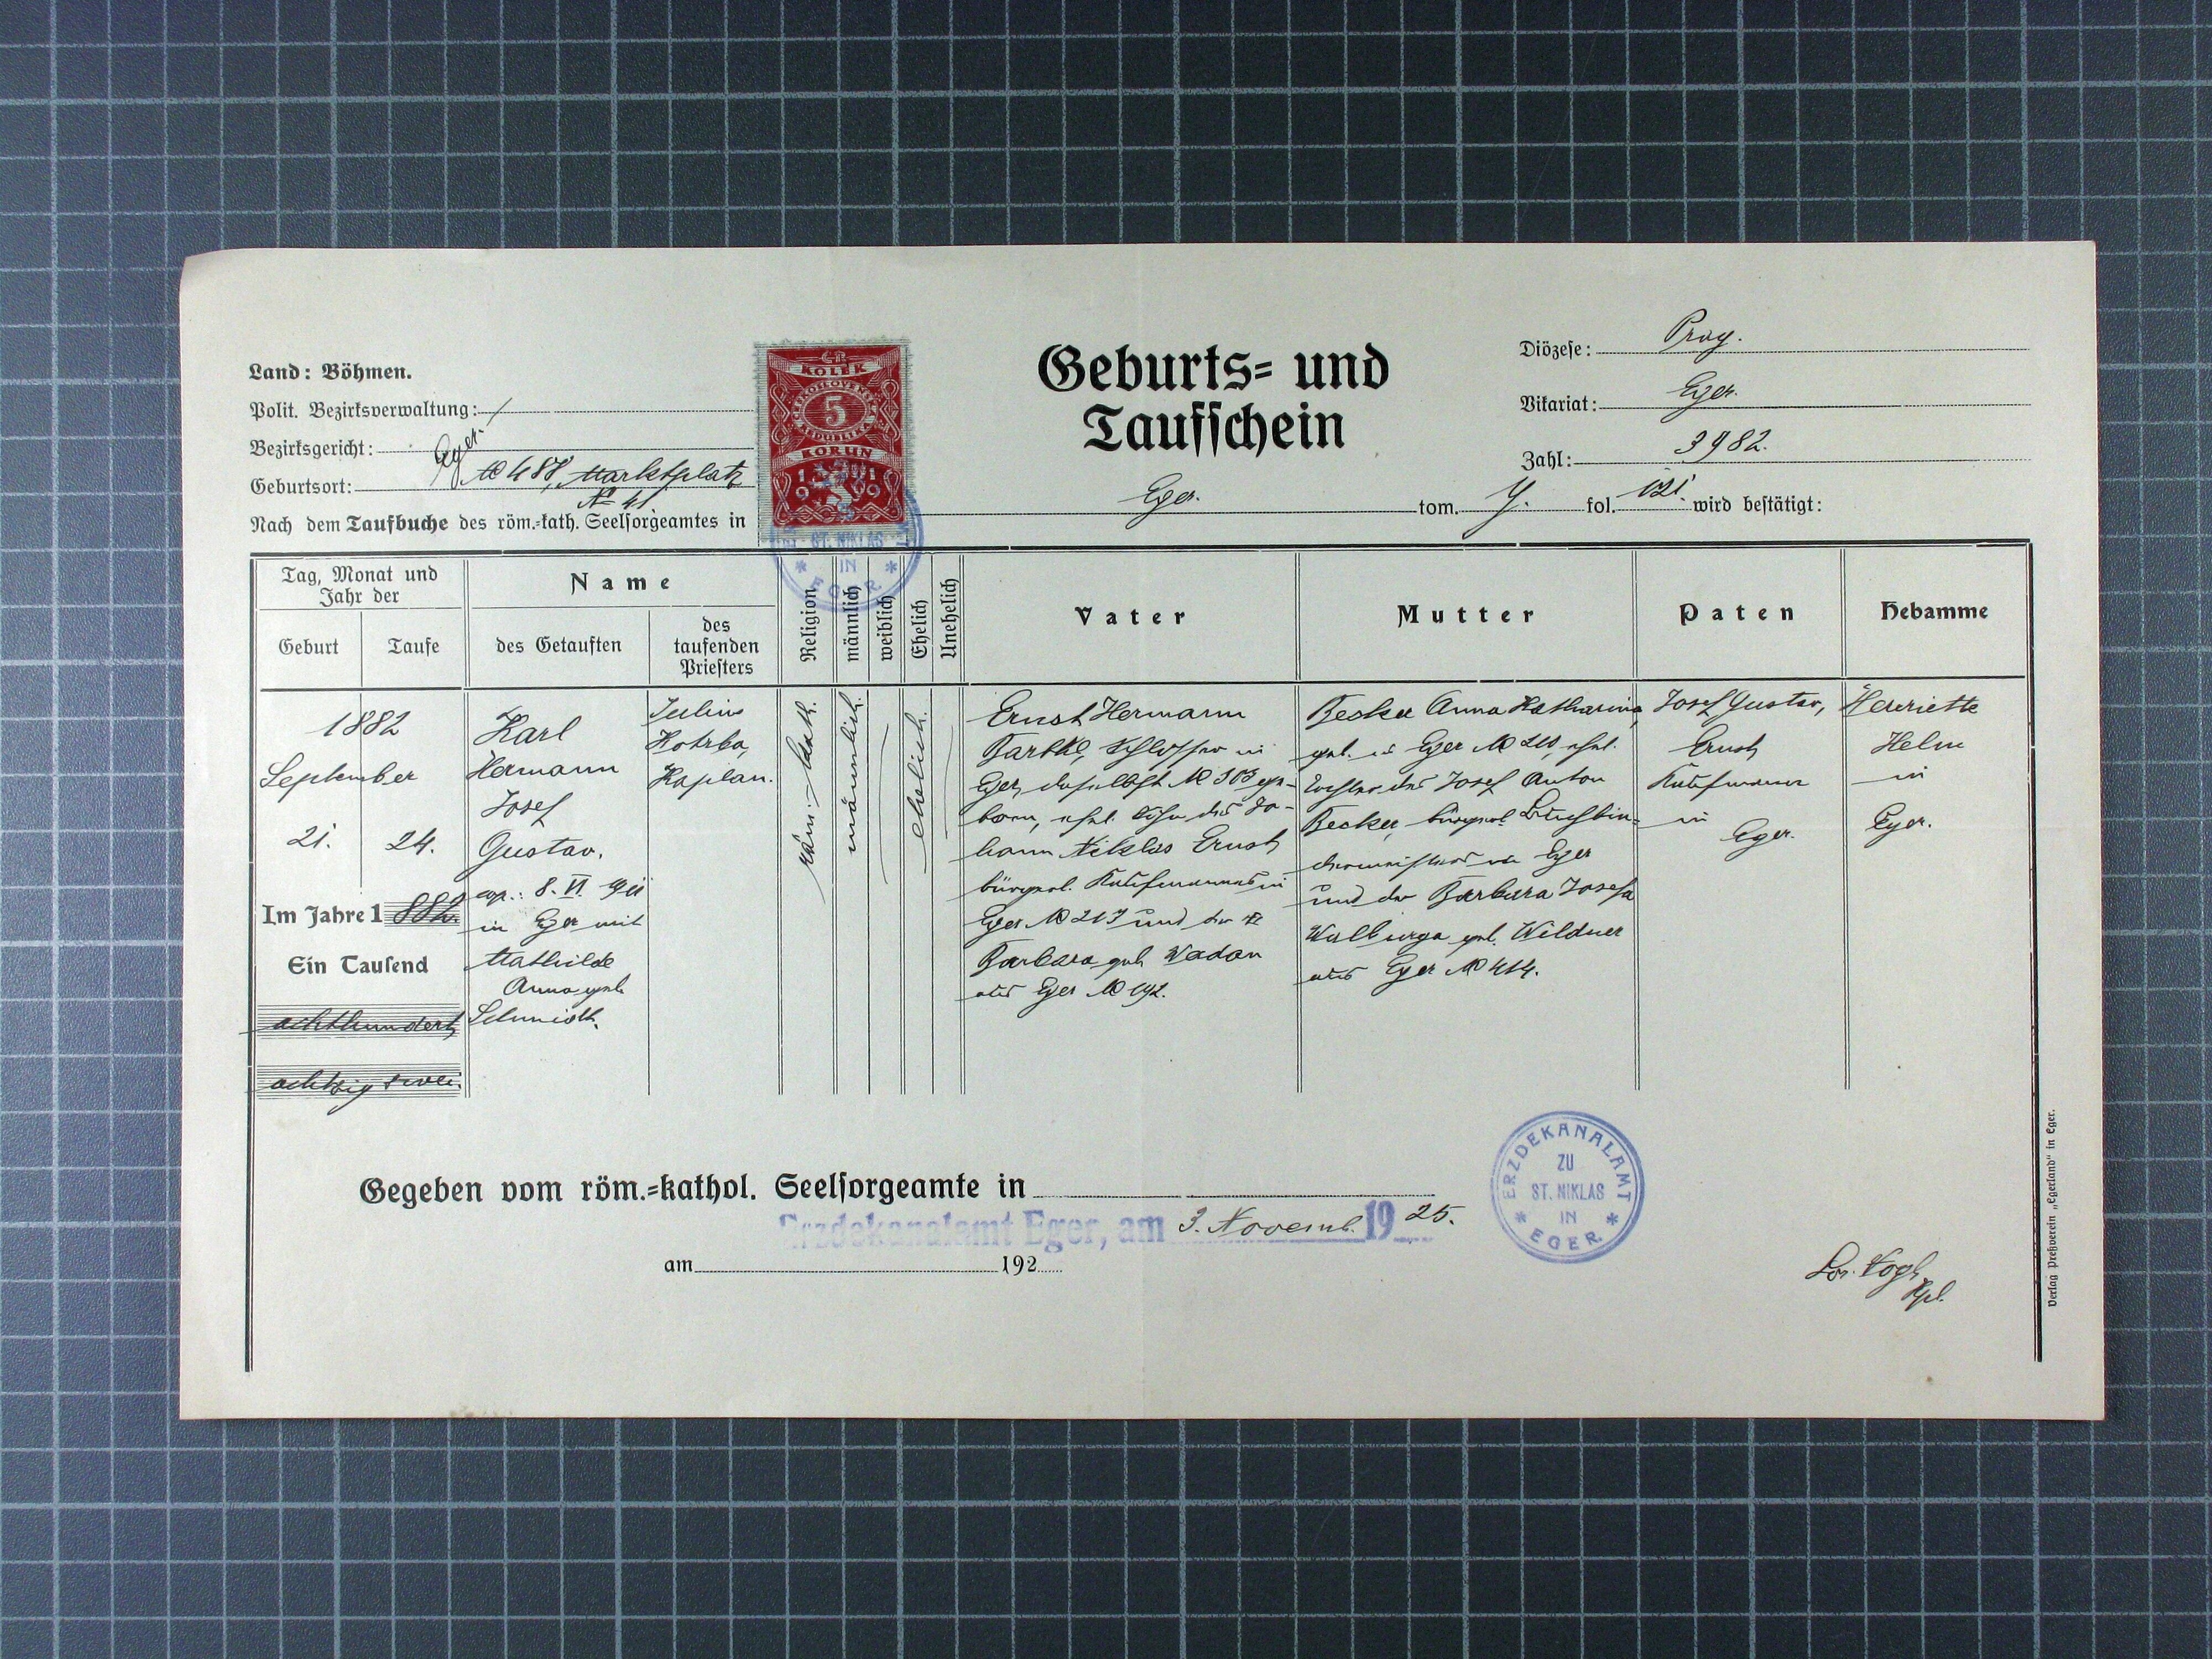 Land: Böhmen.
Polit. Bezirksverwaltung:
Bezirksgericht:
Geburtsort: Eger № 488, Marktplatz
№ 41
Nach dem Taufbuche des röm.-kath. Seelsorgeamtes in Eger. tom. fol. 121. wird bestätigt:
KOLEK
5
KORUN
1919
Geburts- und
Taufschein
Diözese: Prag.
Vikariat: Eger.
Zahl: 3982.
ST. NIKLAS
IN
EGER
Tag, Monat und
Jahr der
Geburt
Taufe
Name
des Getauften
des
taufenden
Priesters
Religion
männlich
weiblich
Ehelich
Unehelich
Vater
Mutter
Paten
Hebamme
1882
September
21. 24.
Im Jahre 1882.
Ein Tausend
achthundert
achtzig zwei.
Karl
Hermann
Josef
Gustav.
cop.: 8. VI. 1911
in Eger mit
Mathilde
Anna geb.
Schmidt.
Julius
Kotrba,
Kaplan.
röm.-kath.
männlich.
ehelich.
Ernst Hermann
Schlosser in
Eger, daselbst № 303 ge-
boren, ehel. Sohn des Jo-
hann Niklas Ernst
bürgerl. Kaufmannes in
Eger № 217 und der
Barbara geb. Wadan
aus Eger № 192.
Becker Anna Katharina,
geb. in Eger № 210, ehel.
Tochter des Josef Anton
Becker, bürgerl. Buchbin-
dermeisters in Eger
und der Barbara Josefa
Walburga geb. Wildner
aus Eger № 414.
Josef Gustav,
Ernst
Kaufmann
in Eger.
Henriette
Helm
in
Eger.
Gegeben vom röm.-kathol. Seelsorgeamte in
Erzdekanalamt Eger, am 3. Novemb. 1925.
am 192
ERZDEKANALAMT
ZU
ST. NIKLAS
IN
EGER
Vogt,
Kpl.
Verlag Preßverein „Egerland" in Eger.